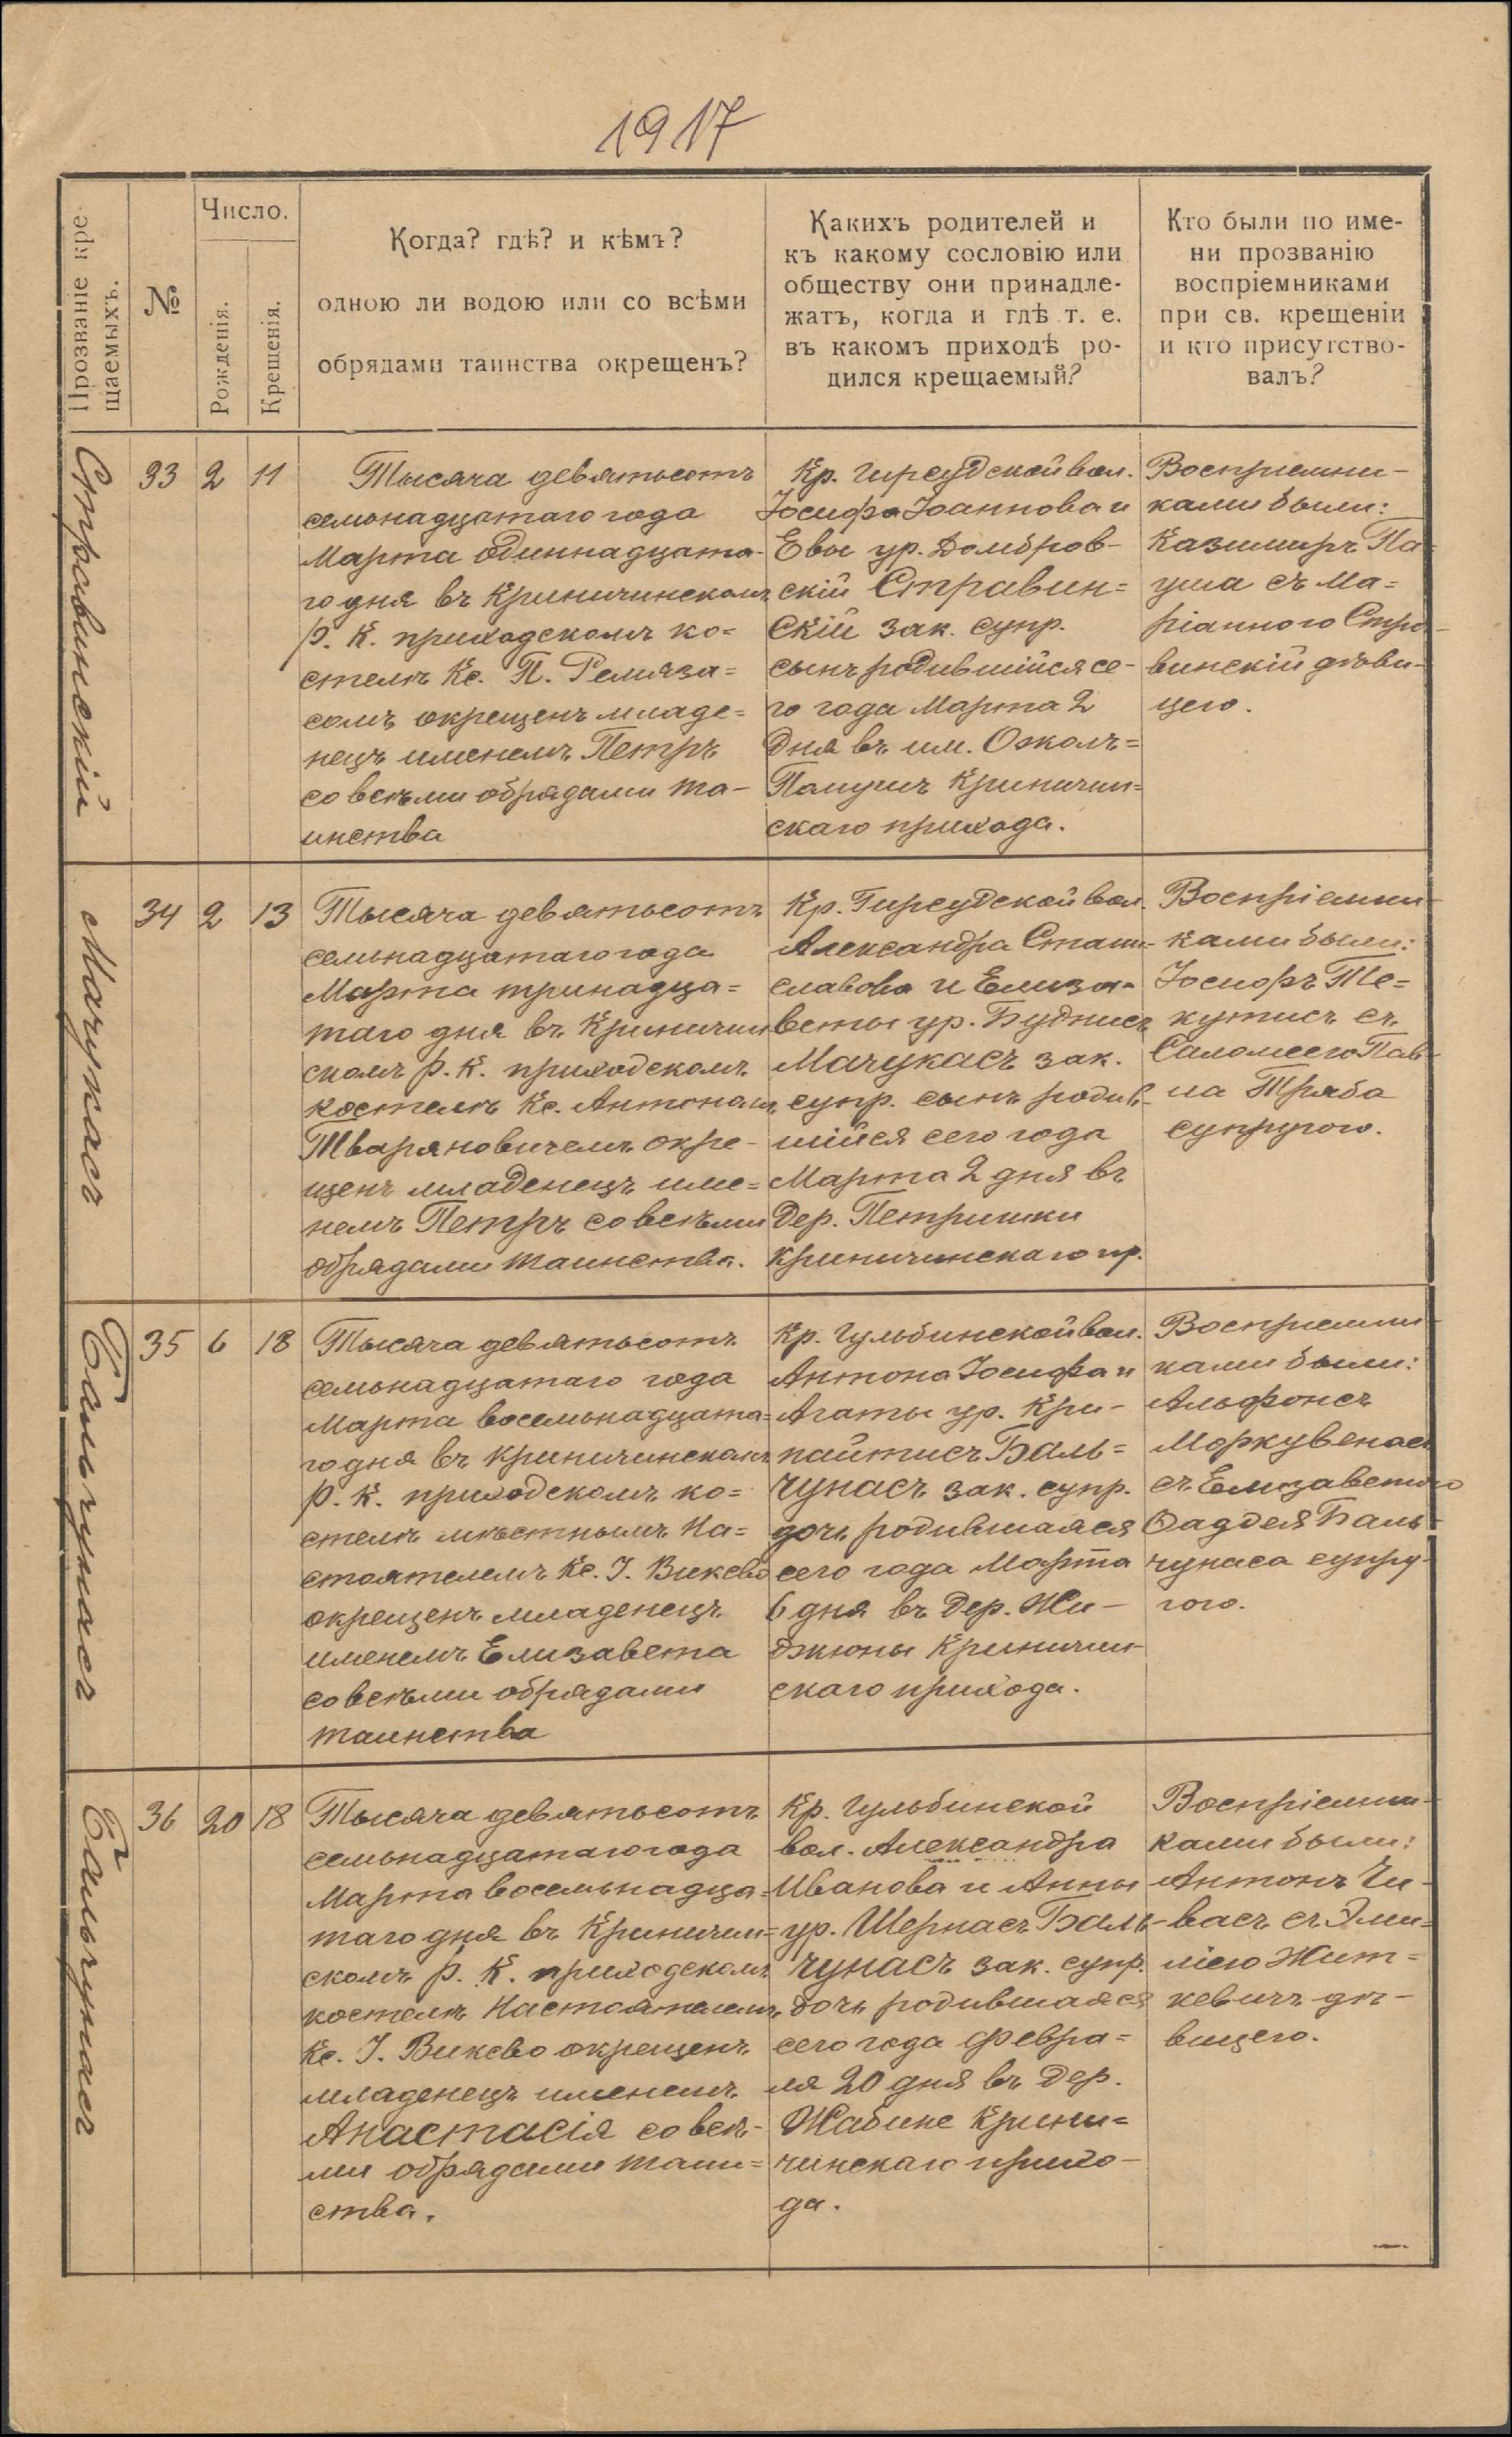 1917
Прозваніе кре-
щаемыхъ.
№
Число.
Рожденія.
Крещенія.
Когда? гдѣ? и кѣмъ?
одною ли водою или со всѣми
обрядами таинства окрещенъ?
Какихъ родителей и
къ какому сословію или
обществу они принадле-
жатъ, когда и гдѣ т. е.
въ какомъ приходѣ ро-
дился крещаемый?
Кто были по име-
ни прозванію
воспріемниками
при св. крещеніи
и кто присутство-
валъ?
Стравинскій
33 2 11
Тысяча девятьсотъ
семьнадцатаго года
Марта одиннадцата-
го дня въ Криничинскомъ
Р. К. приходскомъ ко=
стелѣ Кс. П. Ремяза=
сомъ окрещенъ младе=
нецъ именемъ Петръ
со всѣми обрядами та-
инства
Кр. Гирсудской вол.
Іосифа Іоаннова и
Евы ур. Домбров-
скій Стравин=
скій зак. супр.
сынъ родившійся се-
го года Марта 2
дня въ им. Ожолъ=
Криничин=
скаго прихода.
Восприемни-
ками были:
Казимиръ Па=
уша съ Ма=
ріанною Стра-
винскій дѣви-
цею.
Мачукасъ
34 2 13
Тысяча девятьсотъ
семьнадцатаго года
Марта тринадца=
таго дня въ Криничин
скомъ Р. К. приходскомъ
костелѣ Кс. Антономъ
Тваряновичемъ окре-
щенъ младенецъ име=
немъ Петръ со всѣми
обрядами таинства.
Кр. Гирсудской вол.
Александра Стани=
славова и Елиза-
веты ур. Буднисъ
Мачукасъ зак.
супр. сынъ родив-
шійся сего года
Марта 2 дня въ
дер. Петришки
Криничинскаго пр.
Воспріемни-
ками были:
Іосифъ Те=
кутисъ съ
Саломеею Пав-
ла Тряба
супругою.
Бальчунасъ
35 6 18
Тысяча девятьсотъ
семьнадцатаго года
Марта восемьнадцата=
го дня въ Криничинскомъ
Р. К. приходскомъ ко=
стелѣ мѣстнымъ На=
стоятелемъ Кс. І. Виксво
окрещенъ младенецъ
именемъ Елизавета
со всѣми обрядами
таинства
Кр. Гульбинской вол.
Антона Іосифа и
Агаты ур. Кри-
пайтисъ Баль=
чунасъ зак. супр.
дочь родившаяся
сего года Марта
6 дня въ дер. Жи-
джюны Криничин
скаго прихода.
Восприемни-
ками были:
Альфонсъ
Моркувенасъ
съ Елизаветою
Фаддея Баль-
чунаса супру-
гою.
Бальчунасъ
36 20 18
Тысяча девятьсотъ
семьнадцатаго года
Марта восемьнадца=
таго дня въ Криничин=
скомъ Р. К. приходскомъ
костелѣ Настоятелемъ
Кс. І. Виксво окрещенъ
младенецъ именемъ
Анастасія со всѣ-
ми обрядами таин=
ства.
Кр. Гульбинской
вол. Александра
Иванова и Анны
ур. Шернасъ Баль-
чунасъ зак. супр.
дочь родившаяся
сего года Февра=
ля 20 дня въ дер.
Жабине Крини=
чинскаго прихо-
да.
Воспріемни-
ками были:
Антонъ Чи-
васъ съ Эми=
ліею Жит=
кевичъ дѣ-
вицею.